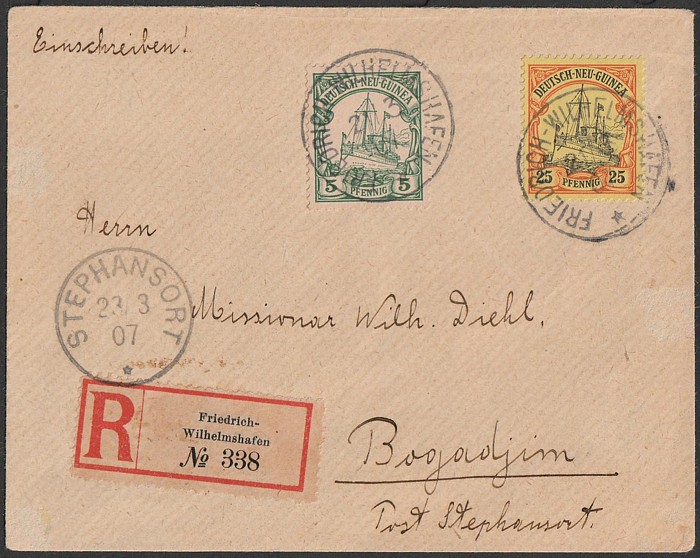 Einschreiben!
DEUTSCH-NEU-GUINEA
5 5
PFENNIG
FRIEDRICH-WILHELMSHAFEN
DEUTSCH-NEU-GUINEA
25 25
PFENNIG
FRIEDRICH-WILHELMSHAFEN
Herrn
STEPHANSORT
23/3
07
Missionar Wilh. Diehl.
R
Friedrich-
Wilhelmshafen
№ 338
Bogadjim
Post Stephansort.